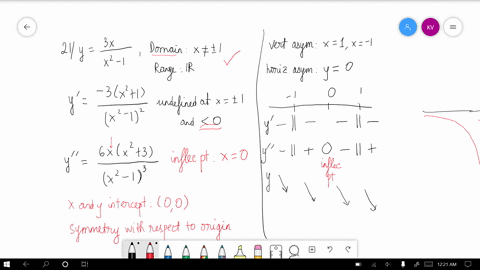 21/ y = 3x / (x² - 1) , Domain: x ≠ ±1
Range: ℝ
y' = -3(x²+1) / (x²-1)² undefined at x = ±1
and < 0
y'' = 6x(x²+3) / (x²-1)³ inflec pt: x = 0
x and y intercept: (0,0)
Symmetry with respect to origin
vert asym: x = 1, x = -1
horiz asym: y = 0
-1 0 1
y' - || - - || -
y'' - || + 0 - || +
inflec
pt
y
KV
12:21 AM